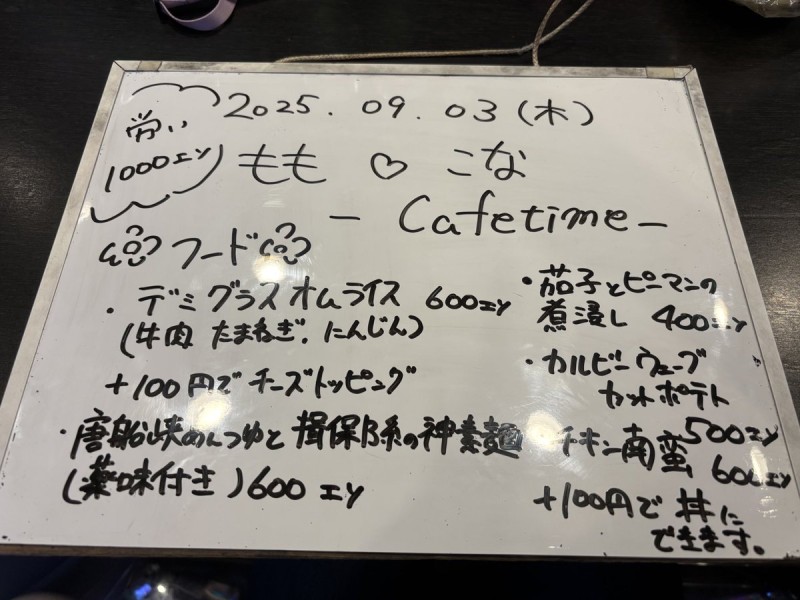 2025.09.03(木)
労い
1000エン
もも♡こな
- Cafetime -
フード
・デミグラスオムライス 600エン
(牛肉 たまねぎ.にんじん)
+100円でチーズトッピング
・唐船峡めんつゆと揖保乃糸の神素麺
(薬味付き)600エン
・茄子とピーマンの
煮浸し 400エン
・カルビーウェーブ
カットポテト
500エン
・チキン南蛮 600エン
+100円で丼に
できます。